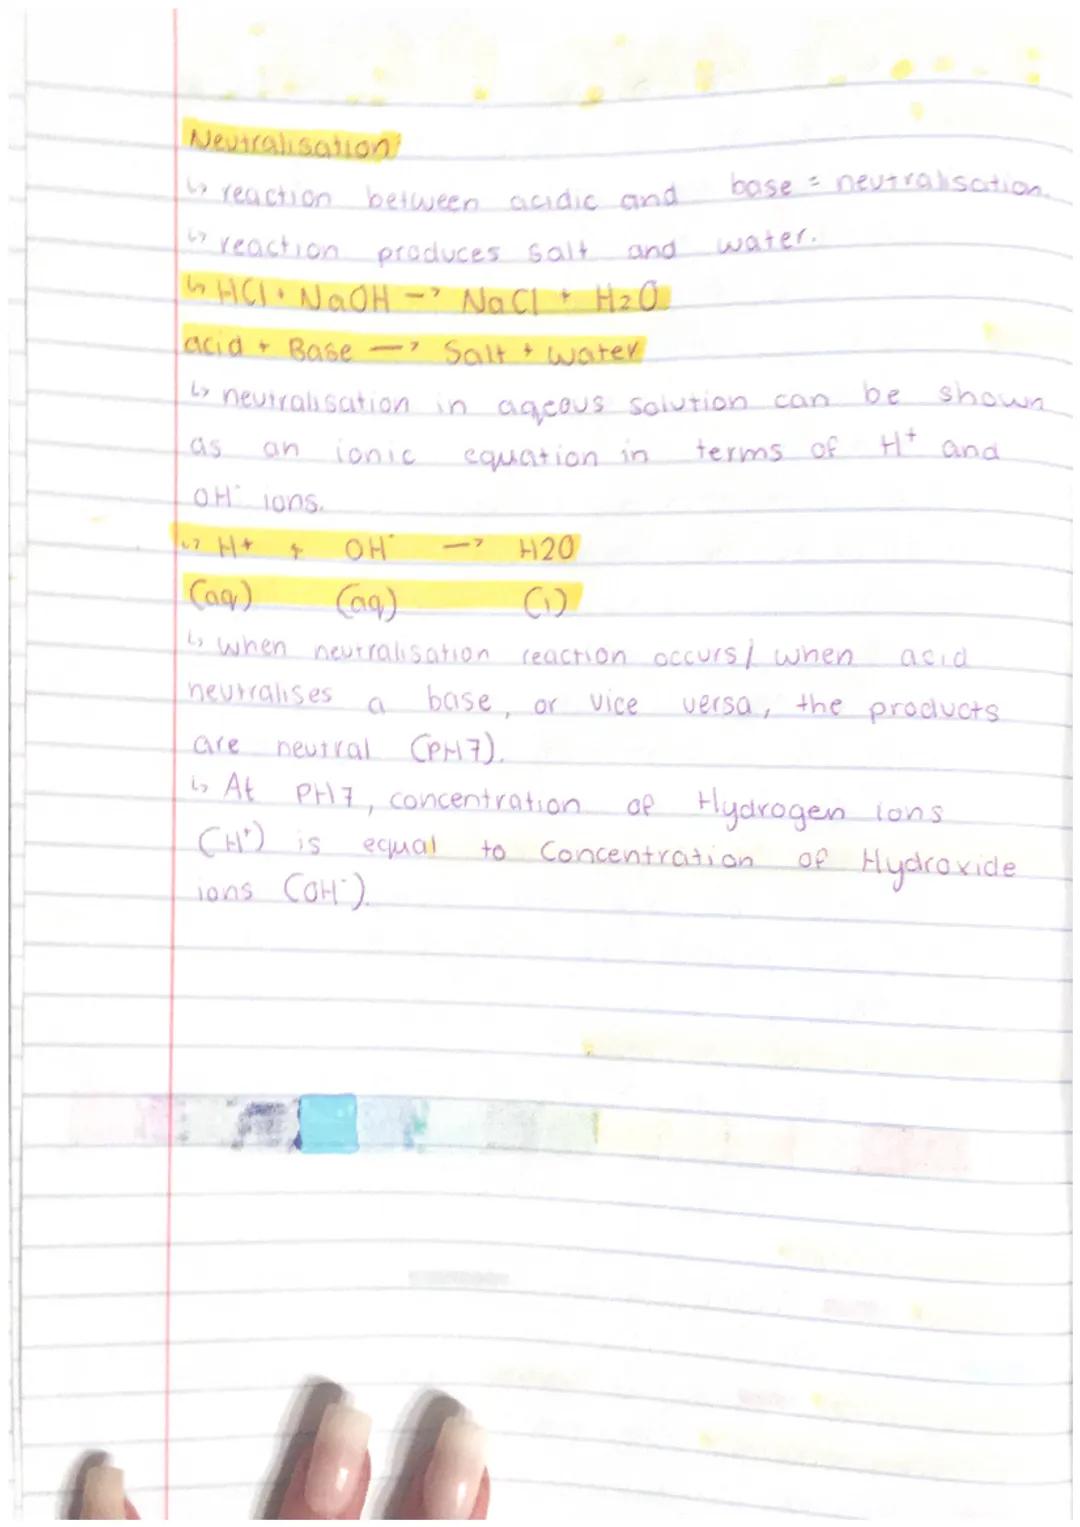 Neutralisation:
↳ reaction between acidic and base = neutralisation.
↳ reaction produces salt and water.
↳ HCl + NaOH → NaCl + H₂O
acid + Base → Salt + water
↳ neutralisation in aqeous solution can be shown
as an ionic equation in terms of H⁺ and
OH⁻ ions.
↳ H+ + OH⁻ → H2O
(aq) (aq) (l)
↳ when neutralisation reaction occurs / when acid
neutralises a base, or vice versa, the products
are neutral (PH7).
↳ At PH7, concentration of Hydrogen ions
(H⁺) is equal to Concentration of Hydroxide
ions (OH⁻).